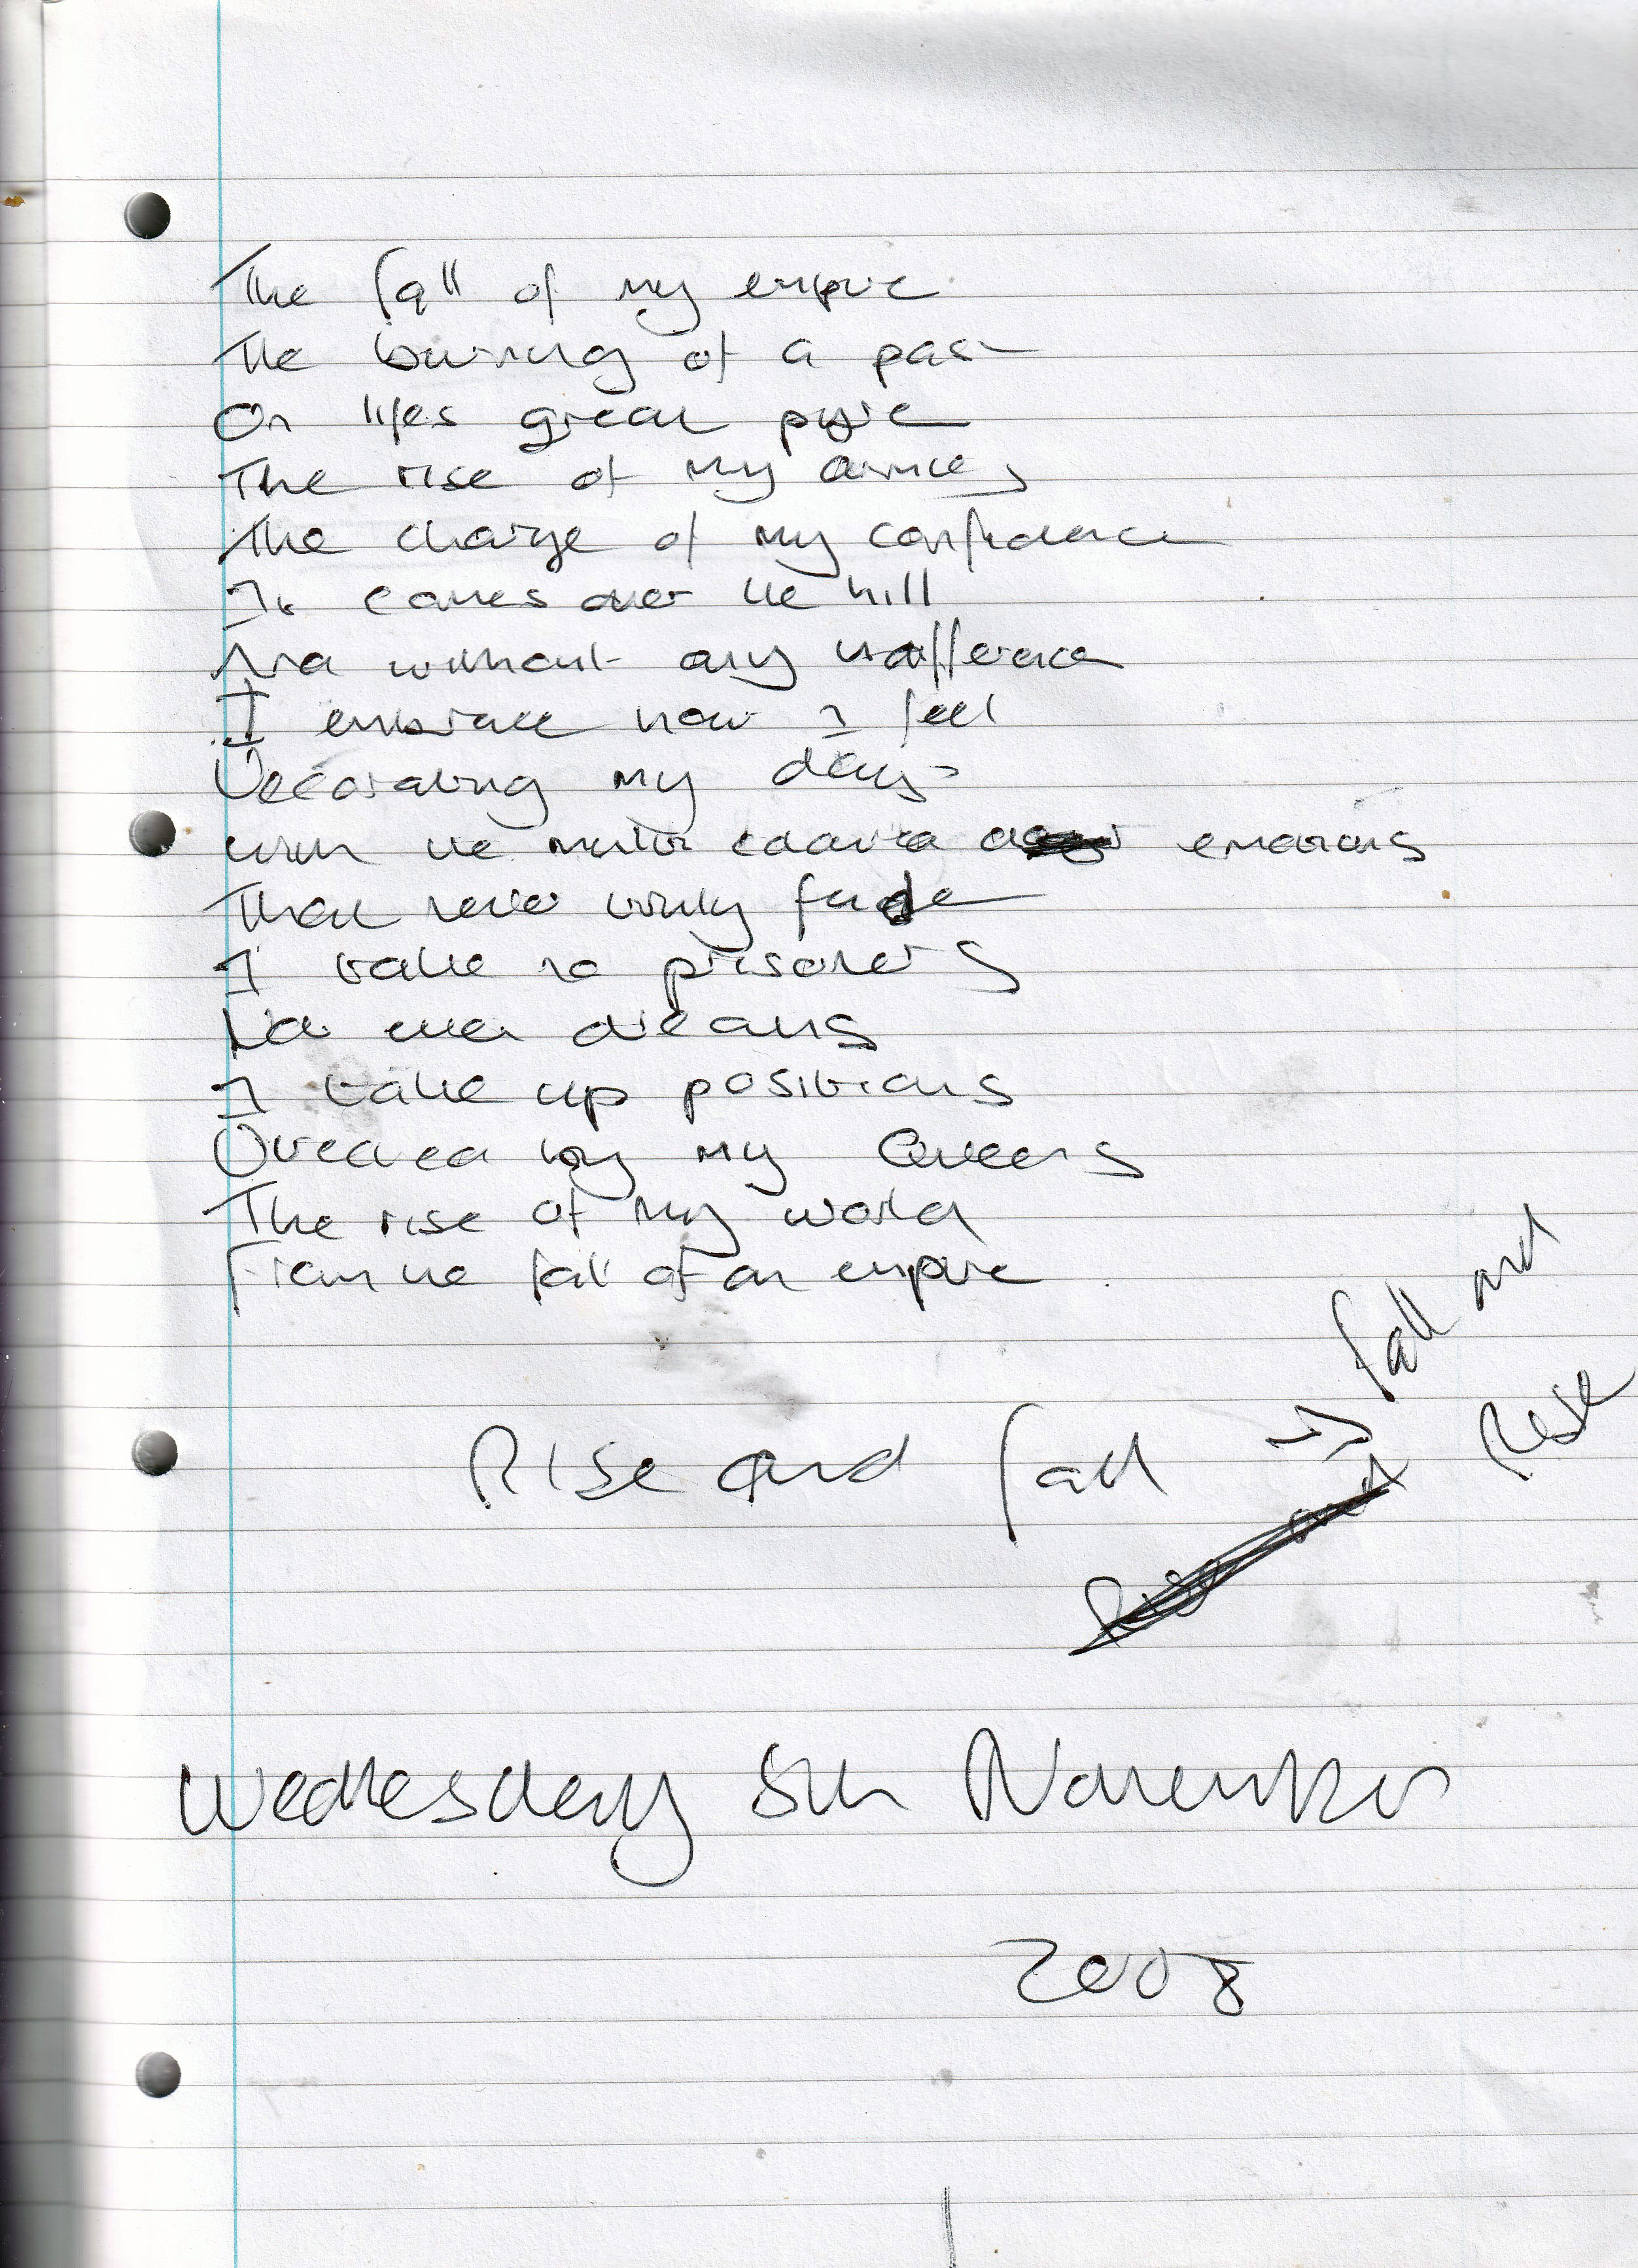 The fall of my empire
The burning of a past
On lifes great pyre
The rise of my armies
The charge of my confidence
It comes over the hill
And without any indifference
I embrace how I feel
Decorating my days
With the multi coloured emotions
That never truly fade
I take no prisoners
Not even dreams
I take up positions
Ordered by my Queens
The rise of my world
From the fall of an empire
Rise and fall => fall and
Rise
Wednesday 5th November
2008